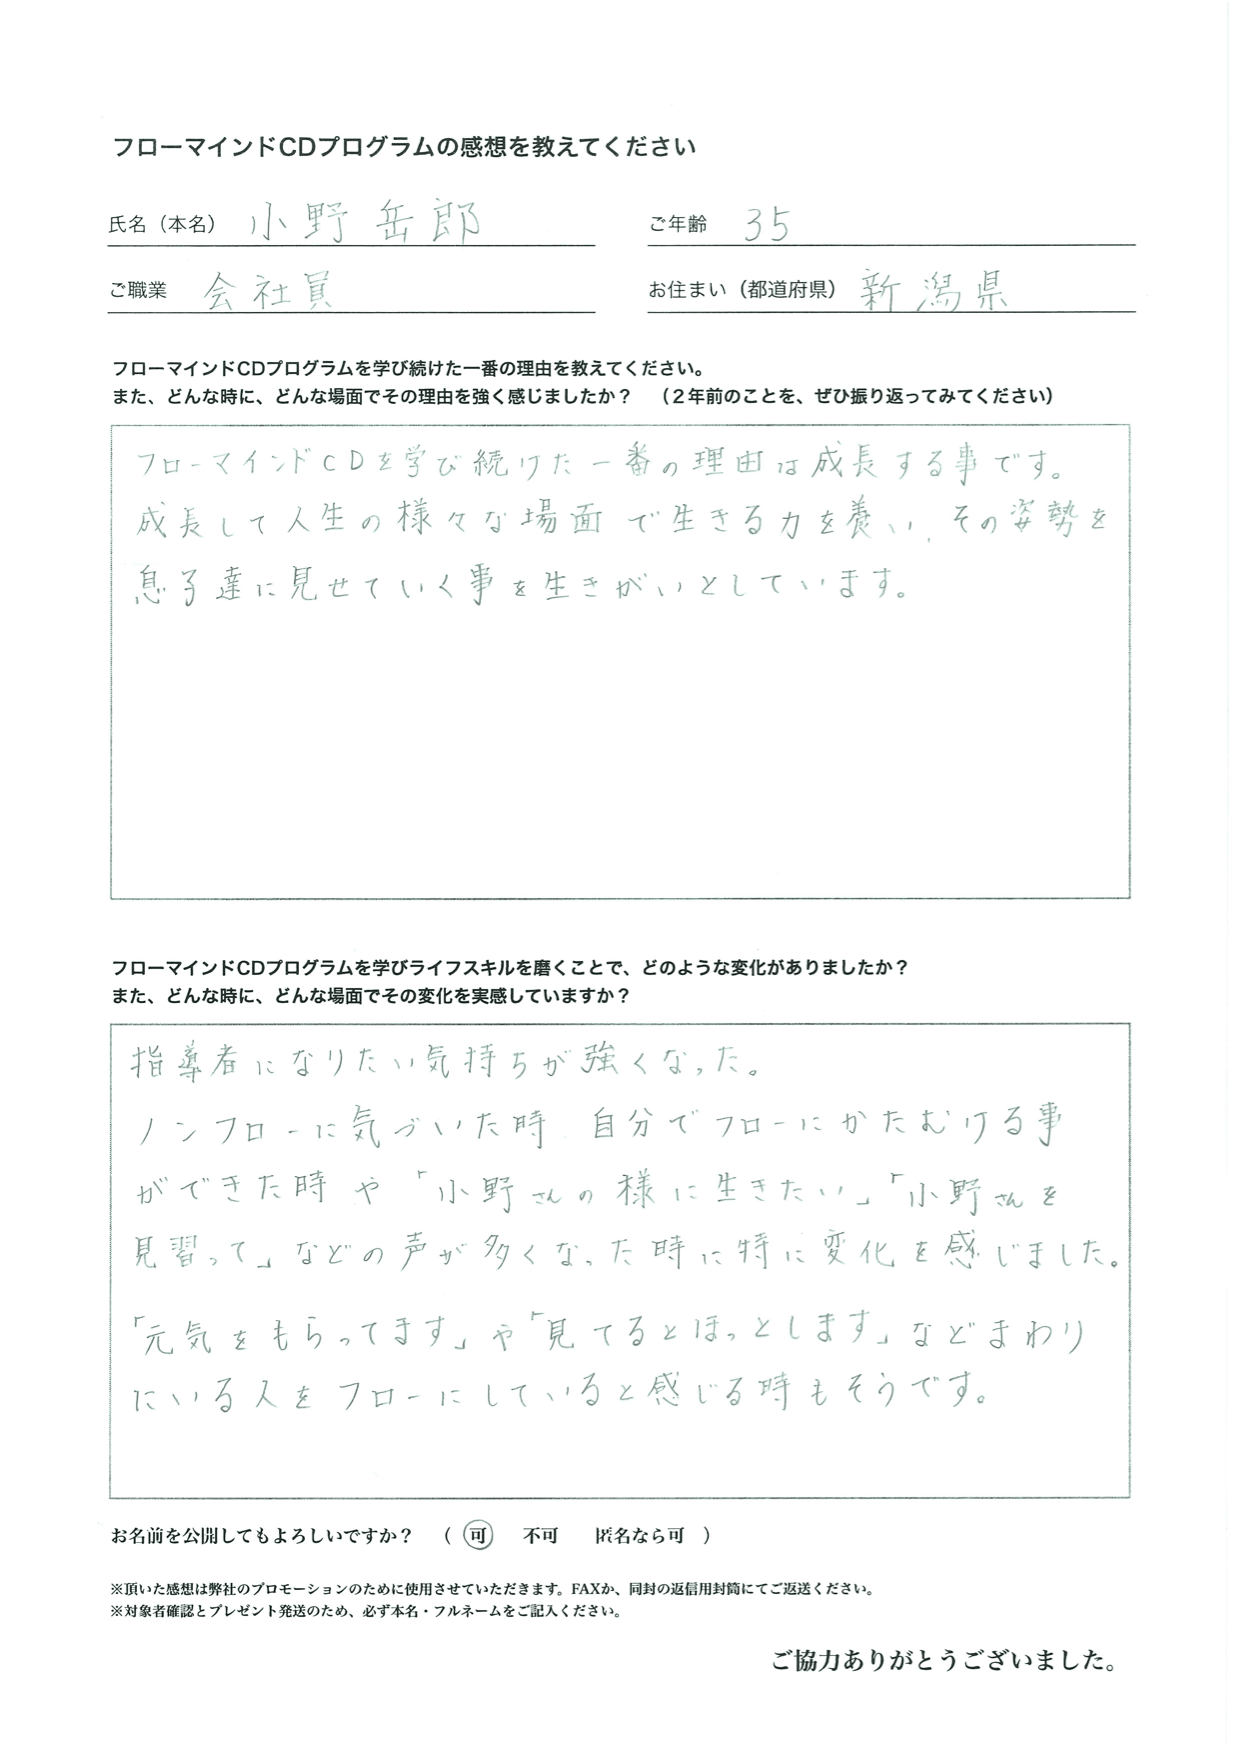 フローマインドCDプログラムの感想を教えてください
氏名（本名） 小野 岳郎
ご年齢 35
ご職業 会社員
お住まい（都道府県） 新潟県
フローマインドCDプログラムを学び続けた一番の理由を教えてください。
また、どんな時に、どんな場面でその理由を強く感じましたか？ （２年前のことを、ぜひ振り返ってみてください）
フローマインドCDを学び続けた一番の理由は成長する事です。
成長して人生の様々な場面で生きる力を養い、その姿勢を
息子達に見せていく事を生きがいとしています。
フローマインドCDプログラムを学びライフスキルを磨くことで、どのような変化がありましたか？
また、どんな時に、どんな場面でその変化を実感していますか？
指導者になりたい気持ちが強くなった。
ノンフローに気づいた時 自分でフローにかたむける事
ができた時や「小野さんの様に生きたい」「小野さんを
見習って」などの声が多くなった時に特に変化を感じました。
「元気をもらってます」や「見てるとほっとします」などまわり
にいる人をフローにしていると感じる時もそうです。
お名前を公開してもよろしいですか？ （ 可 不可 匿名なら可 ）
※頂いた感想は弊社のプロモーションのために使用させていただきます。FAXか、同封の返信用封筒にてご返送ください。
※対象者確認とプレゼント発送のため、必ず本名・フルネームをご記入ください。
ご協力ありがとうございました。